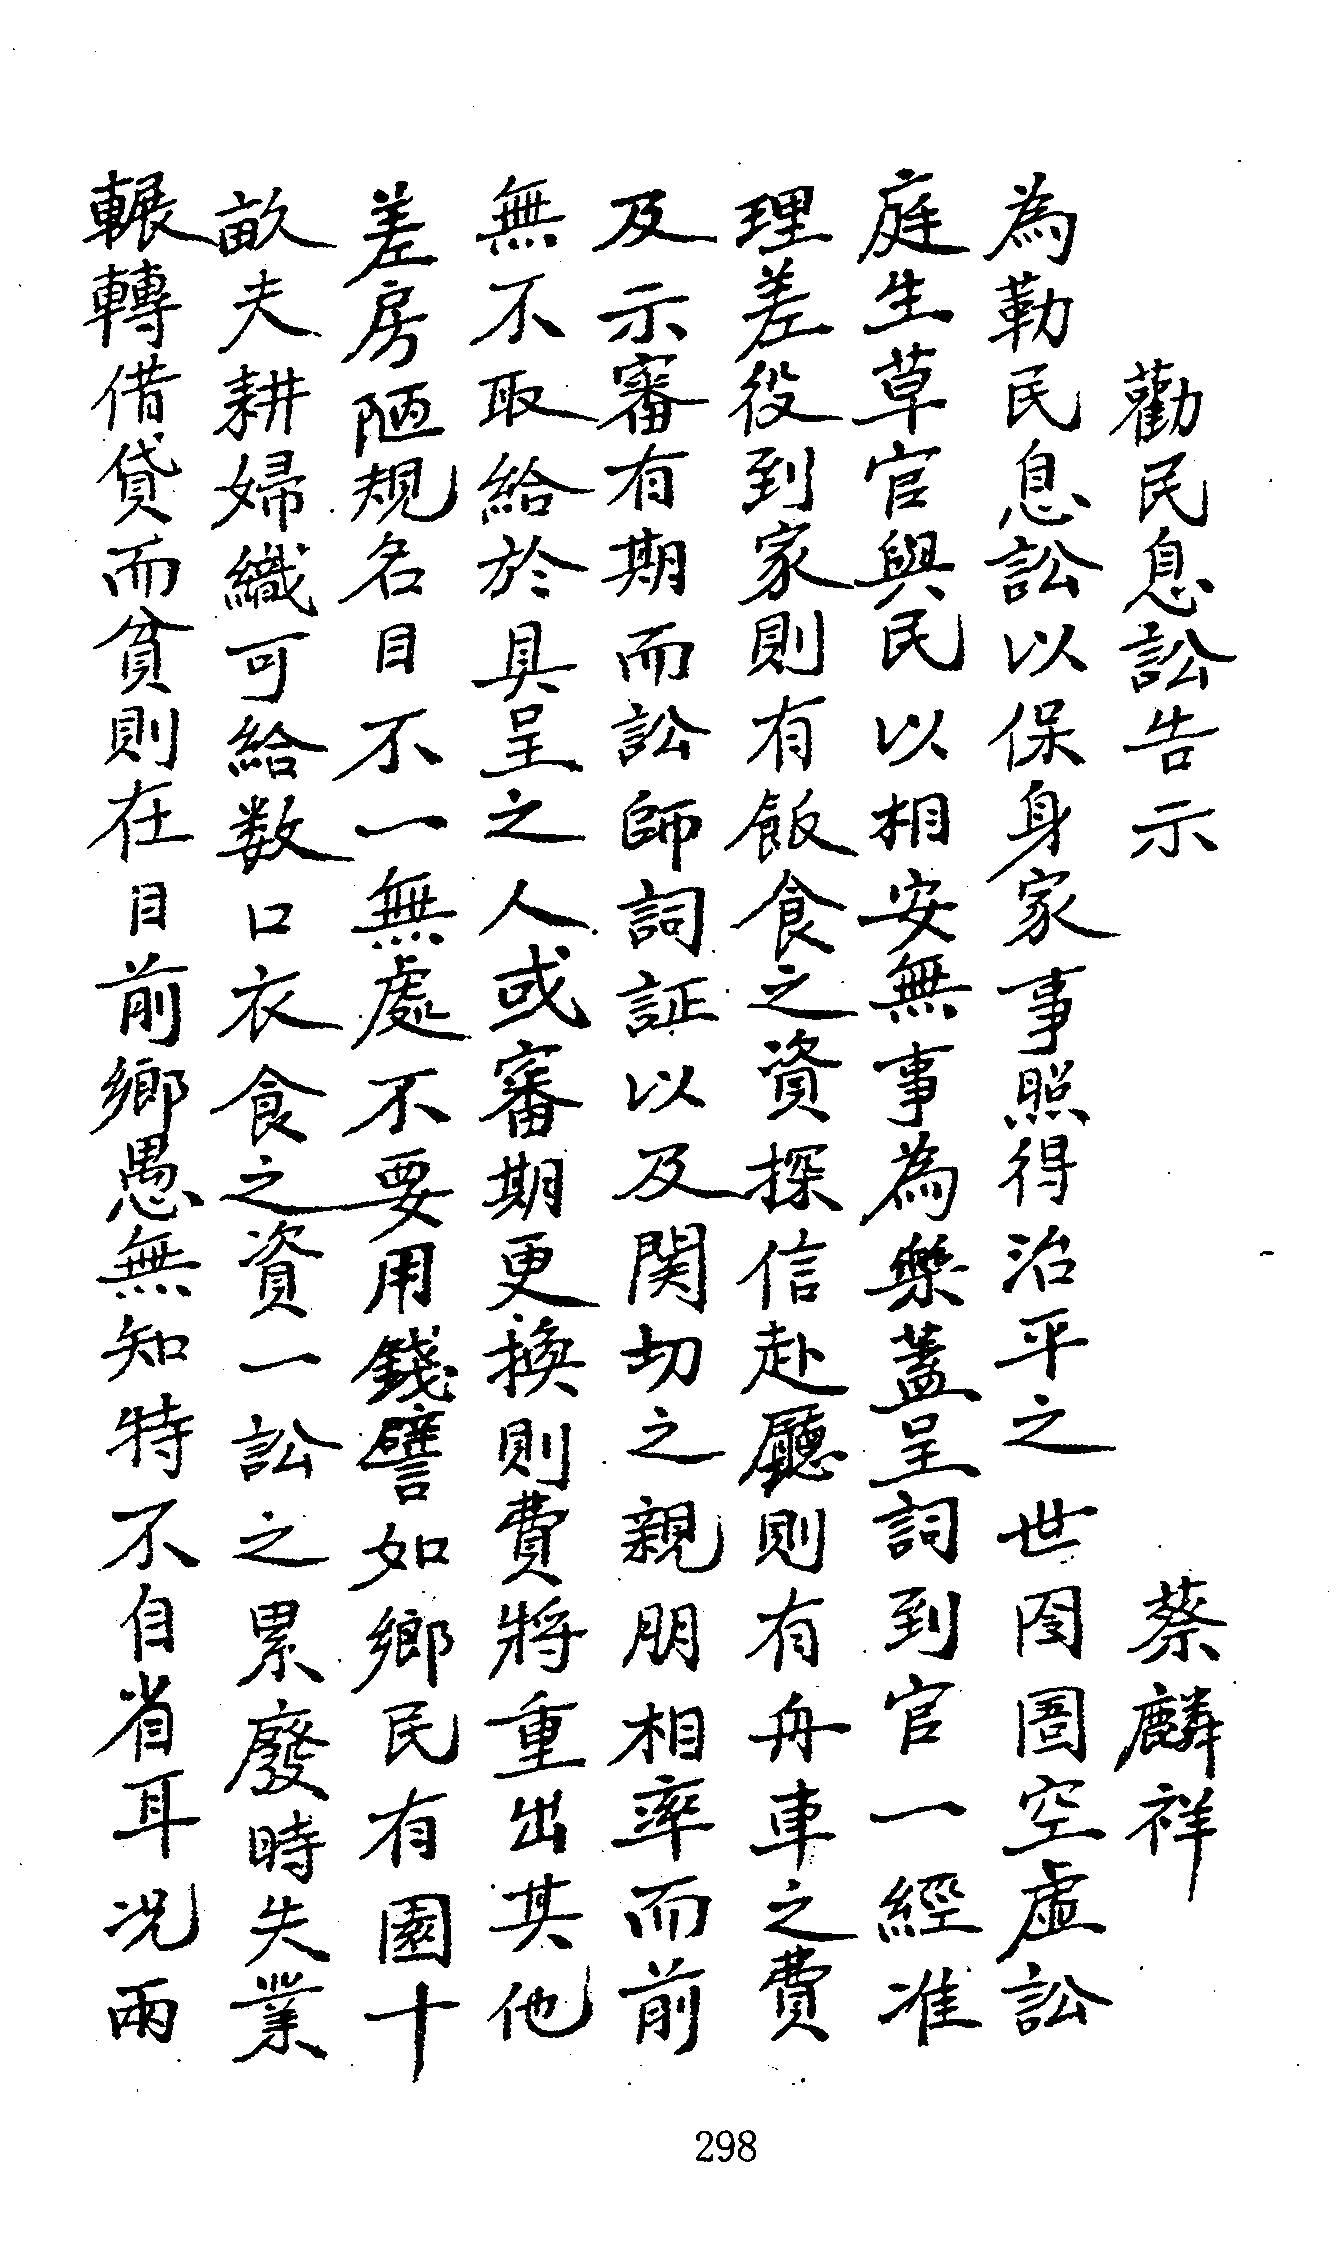 勸民息訟告示 蔡麟祥
為勒民息訟以保身家事照得治平之世囹圄空虛訟
庭生草官與民以相安無事為樂蓋呈詞到官一經准
理差役到家則有飯食之資探信赴廳則有舟車之費
及示審有期而訟師詞証以及関切之親朋相率而前
無不取給於具呈之人或審期更換則費將重出其他
差房陋規名目不一無處不要用錢譬如鄉民有園十
畝夫耕婦織可給数口衣食之資一訟之累廢時失業
輾轉借貸而貧則在目前鄉愚無知特不自省耳況兩
298